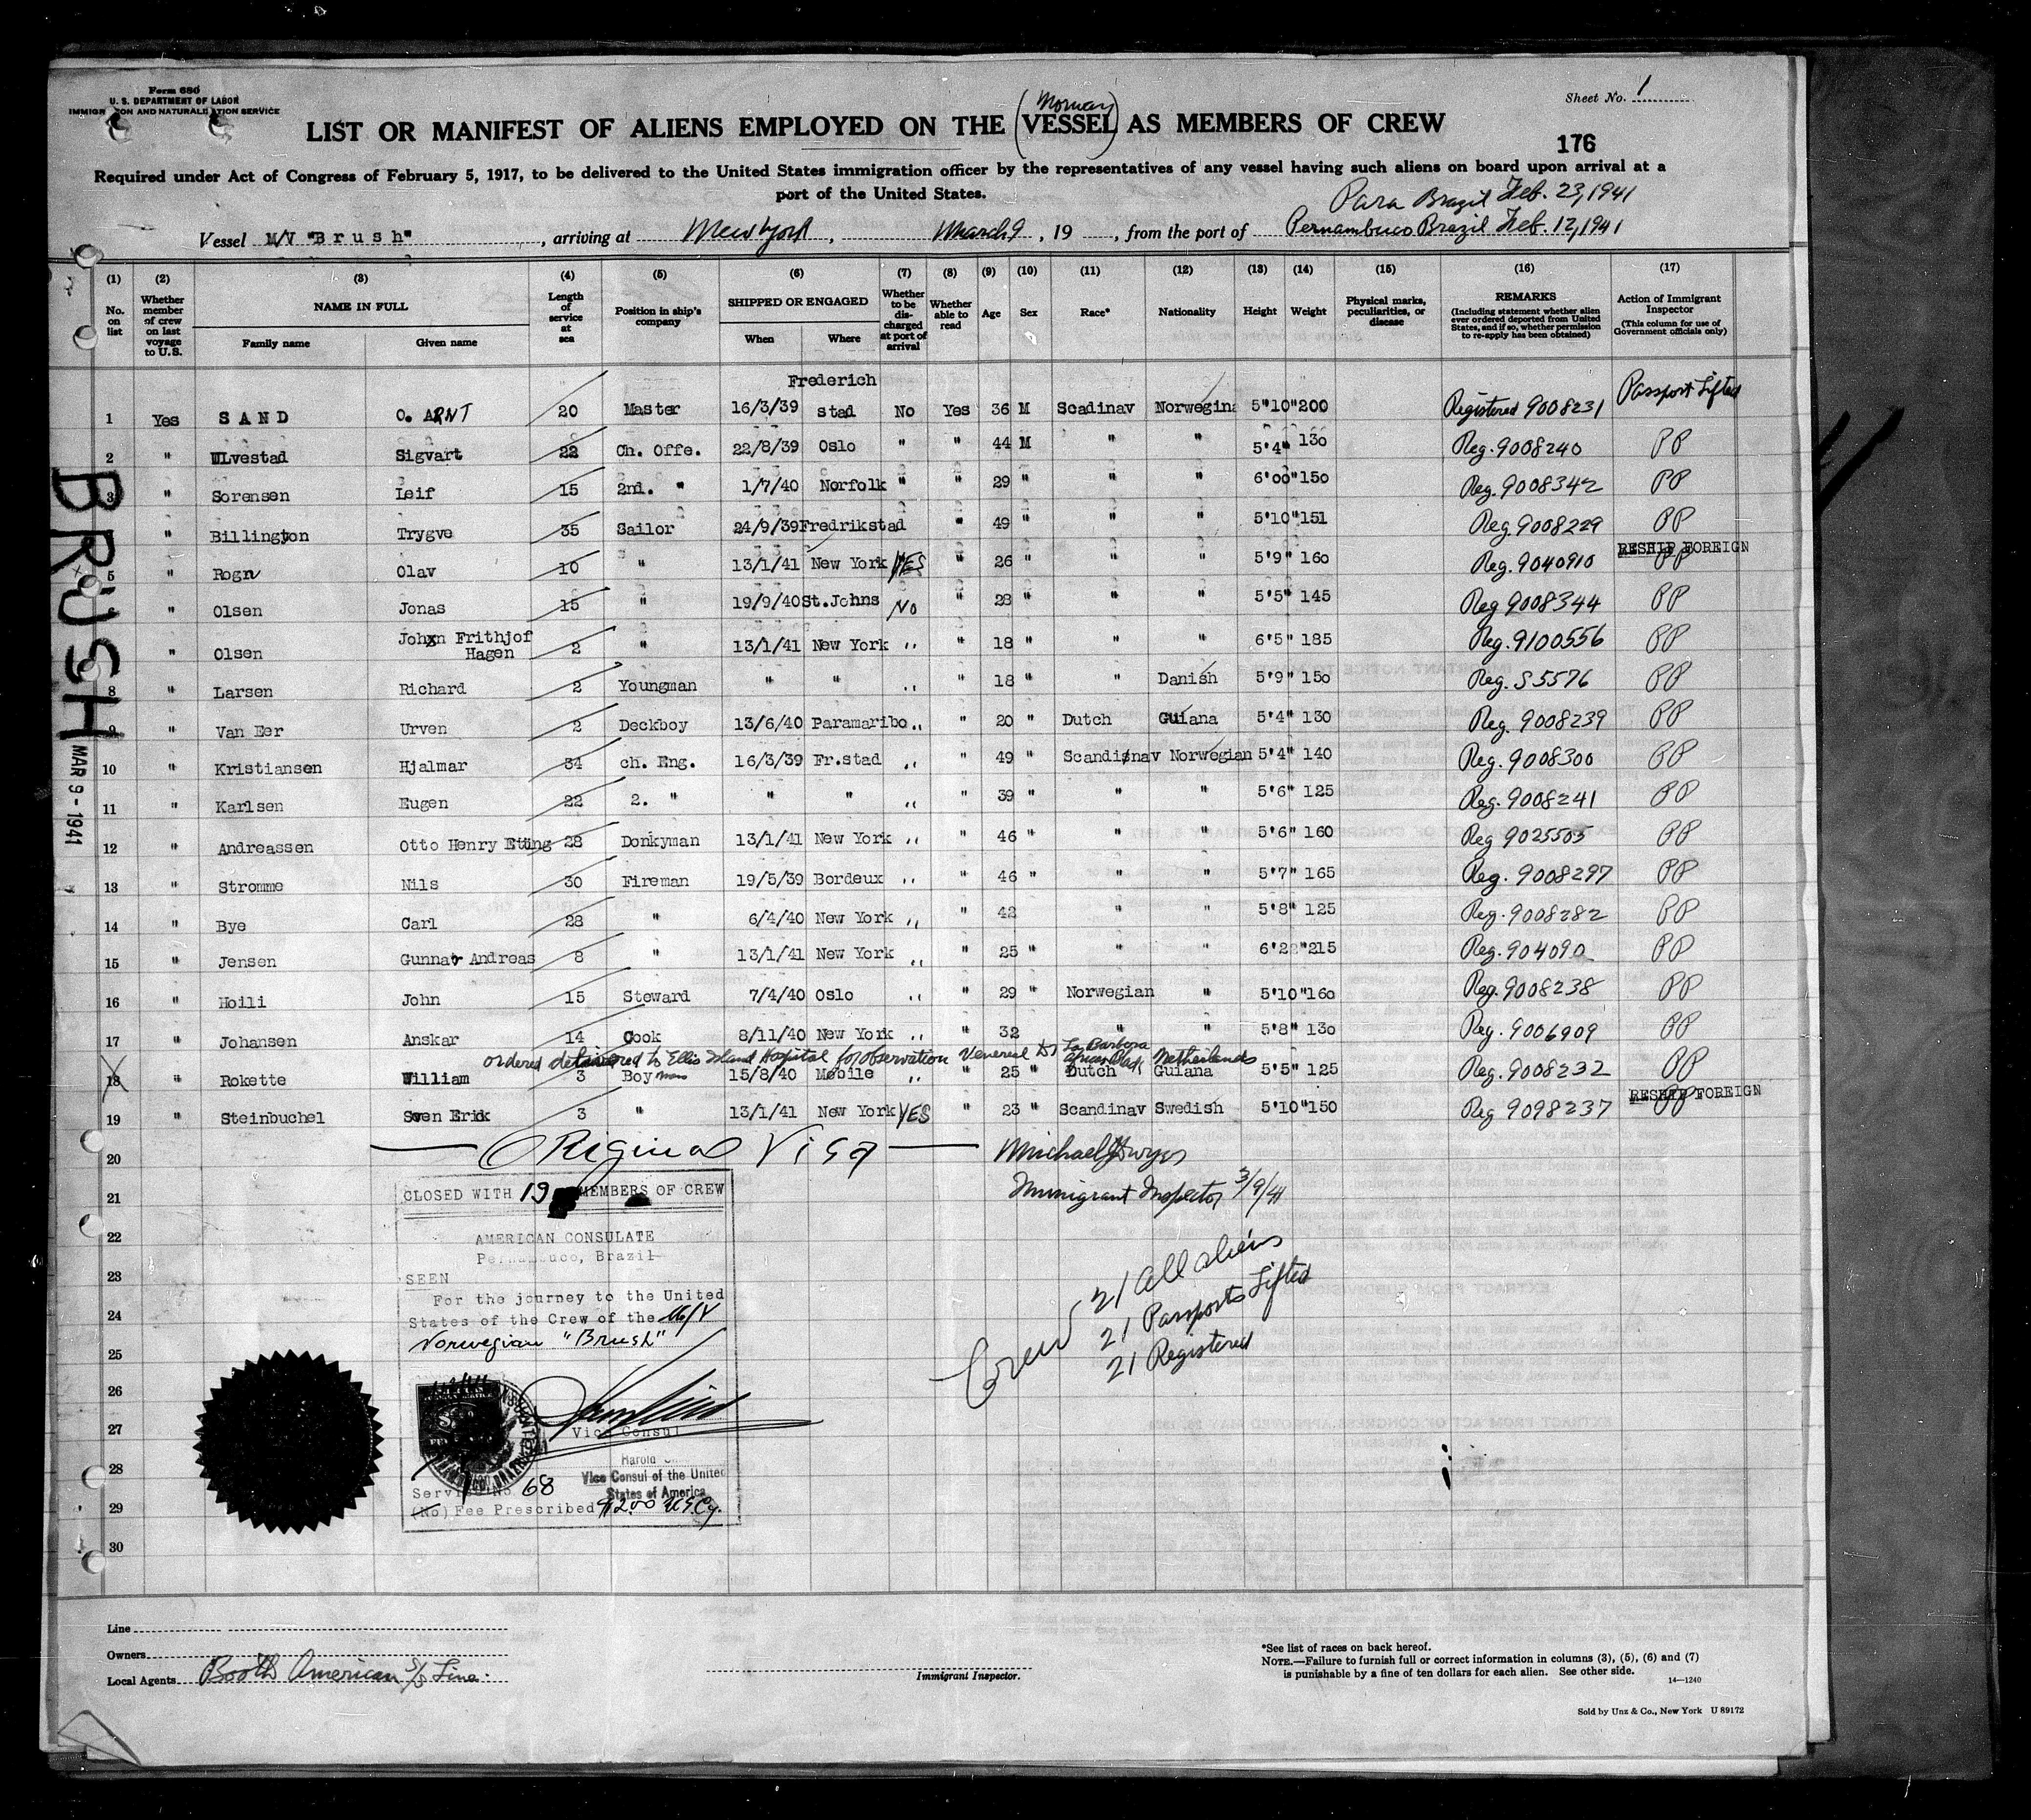 Form 680
U. S. DEPARTMENT OF LABOR
IMMIGRATION AND NATURALIZATION SERVICE
Sheet No. 1
Norway
LIST OR MANIFEST OF ALIENS EMPLOYED ON THE (VESSEL) AS MEMBERS OF CREW
176
Required under Act of Congress of February 5, 1917, to be delivered to the United States immigration officer by the representatives of any vessel having such aliens on board upon arrival at a
port of the United States.
Para Brazil Feb. 23, 1941
Vessel M/V "Brush", arriving at New York, March 9, 19, from the port of Pernambuco Brazil Feb. 12, 1941
(1) (2) (3) (4) (5) (6) (7) (8) (9) (10) (11) (12) (13) (14) (15) (16) (17)
No. on list
Whether member of crew on last voyage to U.S.
NAME IN FULL
Family name Given name
Length of service at sea
Position in ship's company
SHIPPED OR ENGAGED
When Where
Whether to be discharged at port of arrival
Whether able to read
Age Sex Race* Nationality Height Weight
Physical marks, peculiarities, or disease
REMARKS
(Including statement whether alien ever ordered deported from United States, and if so, whether permission to re-apply has been obtained)
Action of Immigrant Inspector
(This column for use of Government officials only)
1 Yes SAND O. ARNT 20 Master 16/3/39 Frederich stad No Yes 36 M Scadinav Norwegina 5'10" 200 Registered 9008231 Passport Lifted
2 " Ulvestad Sigvart 22 Ch. Offe. 22/8/39 Oslo " " 44 M " " 5'4" 130 Reg. 9008240 PP
3 " Sorensen Leif 15 2nd. " 1/7/40 Norfolk " " 29 " " " 6'00" 150 Reg. 9008342 PP
" Billington Trygve 35 Sailor 24/9/39 Fredrikstad " 49 " " " 5'10" 151 Reg. 9008229 PP
5 " Rogn Olav 10 " 13/1/41 New York YES " 26 " " " 5'9" 160 Reg. 9040910 RESHIP FOREIGN PP
" Olsen Jonas 15 " 19/9/40 St.Johns No " 28 " " " 5'5" 145 Reg 9008344 PP
" Olsen John Frithjof Hagen 2 " 13/1/41 New York " " 18 " " " 6'5" 185 Reg. 9100556 PP
8 " Larsen Richard 2 Youngman " " " " 18 " " Danish 5'9" 150 Reg. S5576 PP
9 " Van Eer Urven 2 Deckboy 13/6/40 Paramaribo " " 20 " Dutch Guiana 5'4" 130 Reg. 9008239 PP
10 " Kristiansen Hjalmar 34 ch. Eng. 16/3/39 Fr.stad " " 49 " Scandinav Norwegian 5'4" 140 Reg. 9008300 PP
11 " Karlsen Eugen 22 2. " " " " " 39 " " " 5'6" 125 Reg. 9008241 PP
12 " Andreassen Otto Henry Etting 28 Donkyman 13/1/41 New York " " 46 " " " 5'6" 160 Reg 9025505 PP
13 " Stromme Nils 30 Fireman 19/5/39 Bordeux " " 46 " " " 5'7" 165 Reg. 9008297 PP
14 " Bye Carl 28 " 6/4/40 New York " " 42 " " 5'8" 125 Reg. 9008282 PP
15 " Jensen Gunnar Andreas 8 " 13/1/41 New York " " 25 " " " 6'2" 215 Reg. 904090 PP
16 " Hoili John 15 Steward 7/4/40 Oslo " " 29 " Norwegian " 5'10" 160 Reg. 9008238 PP
17 " Johansen Anskar 14 Cook 8/11/40 New York " " 32 " " 5'8" 130 Reg. 9006909 PP
ordered delivered to Ellis Island Hospital for observation Venereal African Black Netherlands
18 " Rokette William 3 Boy 15/8/40 Mobile " " 25 " Dutch Guiana 5'5" 125 Reg. 9008232 PP
19 " Steinbuchel Sven Erik 3 " 13/1/41 New York YES " 23 " Scandinav Swedish 5'10" 150 Reg 9098237 RESHIP FOREIGN PP
20
21
22
23
24
25
26
27
28
29
30
BRUSH
MAR 9 - 1941
ORiginal Visa
Michael Dwyer
Immigrant Inspector 3/9/41
CLOSED WITH 19 MEMBERS OF CREW
AMERICAN CONSULATE
Pernambuco, Brazil
SEEN
For the journey to the United
States of the Crew of the M/V
Norwegian "Brush"
Vice Consul
Harold
Vice Consul of the United
States of America
Service No. 68
(No) Fee Prescribed $2.00 U.S.Cy.
Crew 21 all aliens
21 Passports Lifted
21 Registered
Line
Owners
Local Agents Booth American S/S Line.
Immigrant Inspector.
*See list of races on back hereof.
NOTE.—Failure to furnish full or correct information in columns (3), (5), (6) and (7)
is punishable by a fine of ten dollars for each alien. See other side.
14—1240
Sold by Unz & Co., New York U 89172